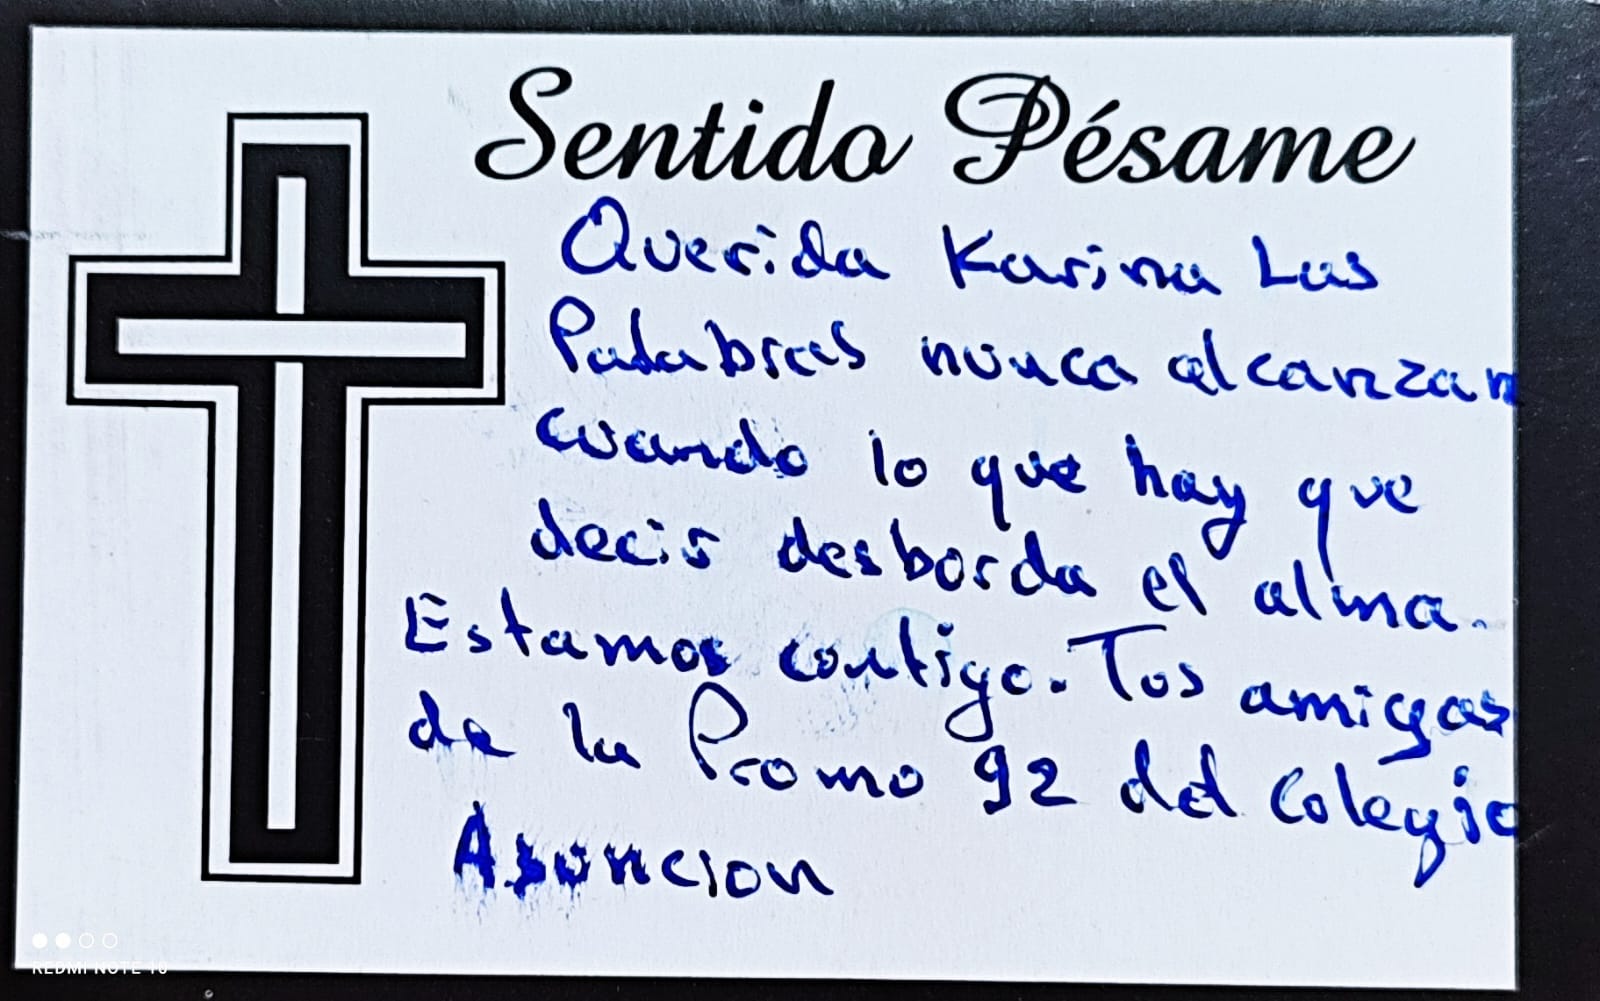 Sentido Pésame
Querida Karina Las
Palabras nunca alcanzan
cuando lo que hay que
decir desborda el alma.
Estamos contigo. Tos amigas
de la Promo 92 del Colegio
Asuncion
REDMI NOTE 10